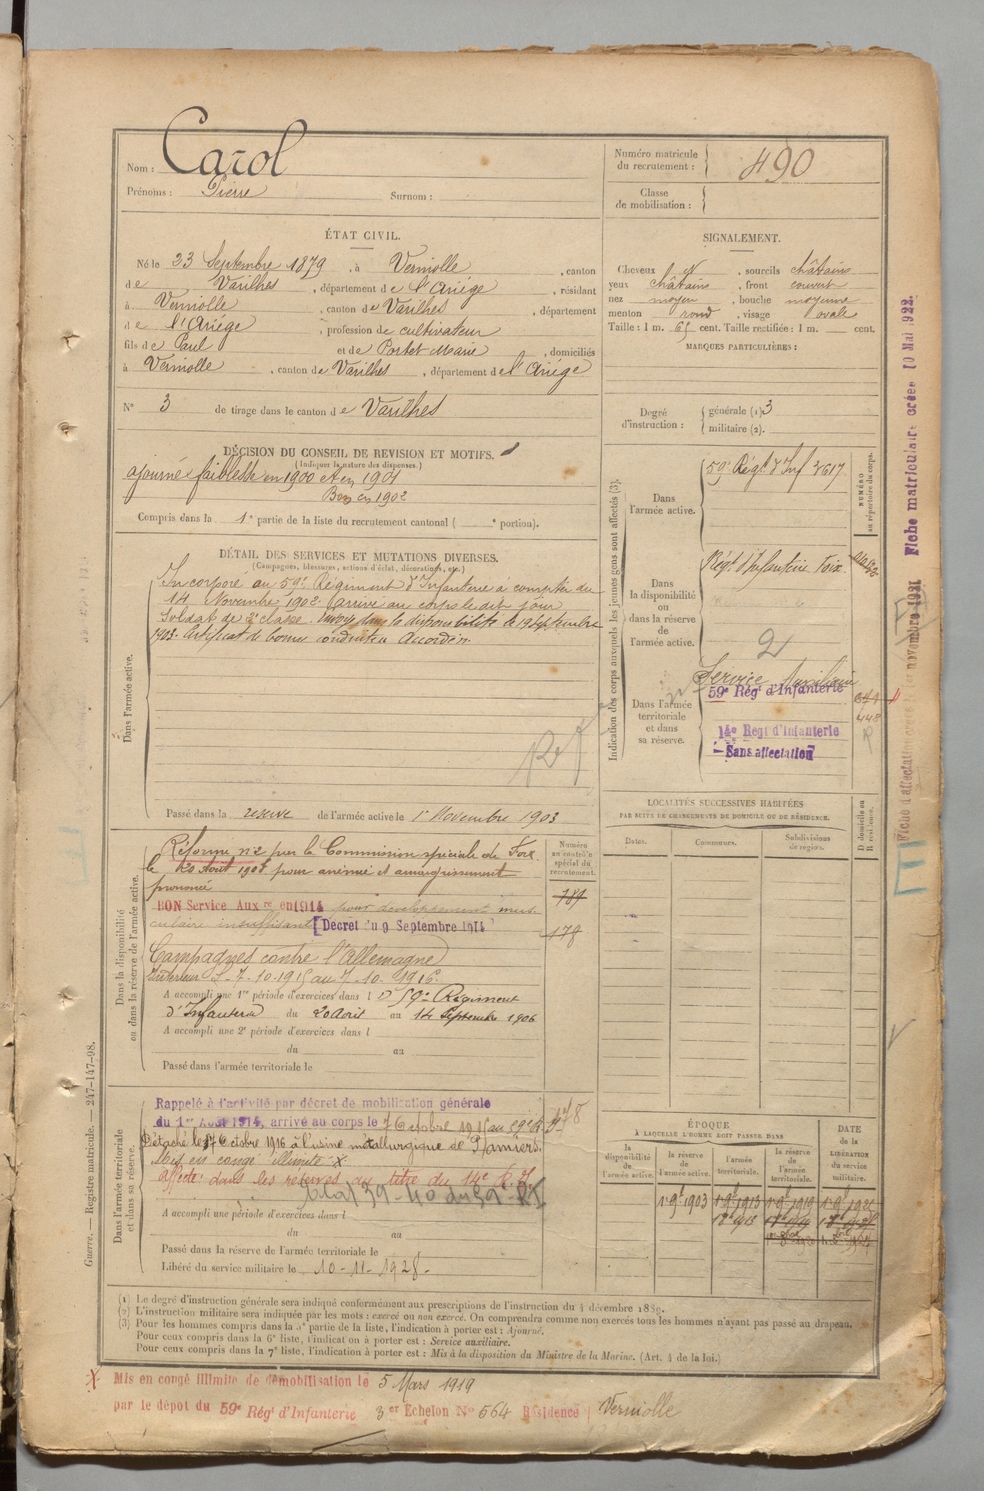 Nom : Carol
Prénoms : Pierre Surnom :
Numéro matricule
du recrutement : 490
Classe
de mobilisation :
ÉTAT CIVIL.
Né le 23 Septembre 1879, à Verniolle, canton
de Varilhes, département de l'Ariège, résidant
à Verniolle, canton de Varilhes, département
de l'Ariège, profession de cultivateur
fils de Paul et de Portet Marie, domiciliés
à Verniolle, canton de Varilhes, département de l'Ariège
N° 3 de tirage dans le canton de Varilhes
SIGNALEMENT.
Cheveux , sourcils châtains
yeux châtains, front couvert
nez moyen, bouche moyenne
menton rond, visage ovale
Taille : 1 m. 65 cent. Taille rectifiée : 1 m. cent.
MARQUES PARTICULIÈRES :
Degré
d'instruction :
générale (1) 3
militaire (2).
DÉCISION DU CONSEIL DE REVISION ET MOTIFS.
(Indiquer la nature des dispenses.)
ajourné faiblesse en 1900 et en 1901
Bon en 1902
Compris dans la 1e partie de la liste du recrutement cantonal ( e portion).
DÉTAIL DES SERVICES ET MUTATIONS DIVERSES.
(Campagnes, blessures, actions d'éclat, décorations, etc.)
Dans l'armée active.
Incorporé au 59e Régiment d'Infanterie à compter du
14 Novembre 1902. Arrivé au corps le dit jour
Soldat de 2e classe. Envoyé dans la disponibilité le 19 Septembre
1903. Certificat de bonne conduite Accordé.
Passé dans la reserve de l'armée active le 1er Novembre 1903
Indication des corps auxquels les jeunes gens sont affectés (3).
NUMÉRO
au répertoire du corps.
Dans
l'armée active.
59e Régt d'Inf 3617
Dans
la disponibilité
ou
dans la réserve
de
l'armée active.
Régt d'Infanterie Foix
2
Dans l'armée
territoriale
et dans
sa réserve.
Service Auxiliaire
59e Régt d'Infanterie
14e Régt d'Infanterie
Sans affectation
448
R
Fiche matriculaire créée 10 Mai 1922.
LOCALITÉS SUCCESSIVES HABITÉES
PAR SUITE DE CHANGEMENTS DE DOMICILE OU DE RÉSIDENCE.
Dates.
Communes.
Subdivisions
de région.
D domicile ou
R résidence.
Dans la disponibilité
ou dans la réserve de l'armée active.
Numéro
au contrôle
spécial du
recrutement.
Réformé n°2 par la Commission spéciale de Foix
le 20 Août 1908 pour anémie et amaigrissement
prononcé
BON Service Auxre en 1914 pour développement mus-
culaire insuffisant [Décret du 9 Septembre 1914
178
Campagnes contre l'Allemagne
Intérieur S - 7-10-1915 au 7-10-1916.
A accompli une 1re période d'exercices dans le 59e Régiment
d'Infanterie du 20 Août au 14 Septembre 1906
A accompli une 2e période d'exercices dans l
du au
Passé dans l'armée territoriale le
Dans l'armée territoriale
et dans sa réserve.
Rappelé à l'activité par décret de mobilisation générale
du 1er Août 1914, arrivé au corps le 7 Octobre 1915 au 59e R.I.
Détaché le 7 Octobre 1916 à l'usine métallurgique de Pamiers.
Mis en congé illimité X
affecté dans les réserves au titre du 14e R.I.
A accompli une période d'exercices dans l
du au
Passé dans la réserve de l'armée territoriale le
Libéré du service militaire le 10-11-1928.
ÉPOQUE
À LAQUELLE L'HOMME DOIT PASSER DANS
DATE
de la
LIBÉRATION
du service
militaire.
la
disponibilité
de
l'armée active.
la réserve
de
l'armée active.
l'armée
territoriale.
la réserve
de
l'armée
territoriale.
(1) Le degré d'instruction générale sera indiqué conformément aux prescriptions de l'instruction du 4 décembre 1889.
(2) L'instruction militaire sera indiquée par les mots : exercé ou non exercé. On comprendra comme non exercés tous les hommes n'ayant pas passé au drapeau.
(3) Pour les hommes compris dans la 5e partie de la liste, l'indication à porter est : Ajourné.
Pour ceux compris dans la 6e liste, l'indication à porter est : Service auxiliaire.
Pour ceux compris dans la 7e liste, l'indication à porter est : Mis à la disposition du Ministre de la Marine. (Art. 4 de la loi.)
X Mis en congé illimité de démobilisation le 5 Mars 1919
par le dépôt du 59e Régt d'Infanterie 3er Echelon N° 564 Résidence Verniolle
Guerre. — Registre matricule. — 247-147-98.